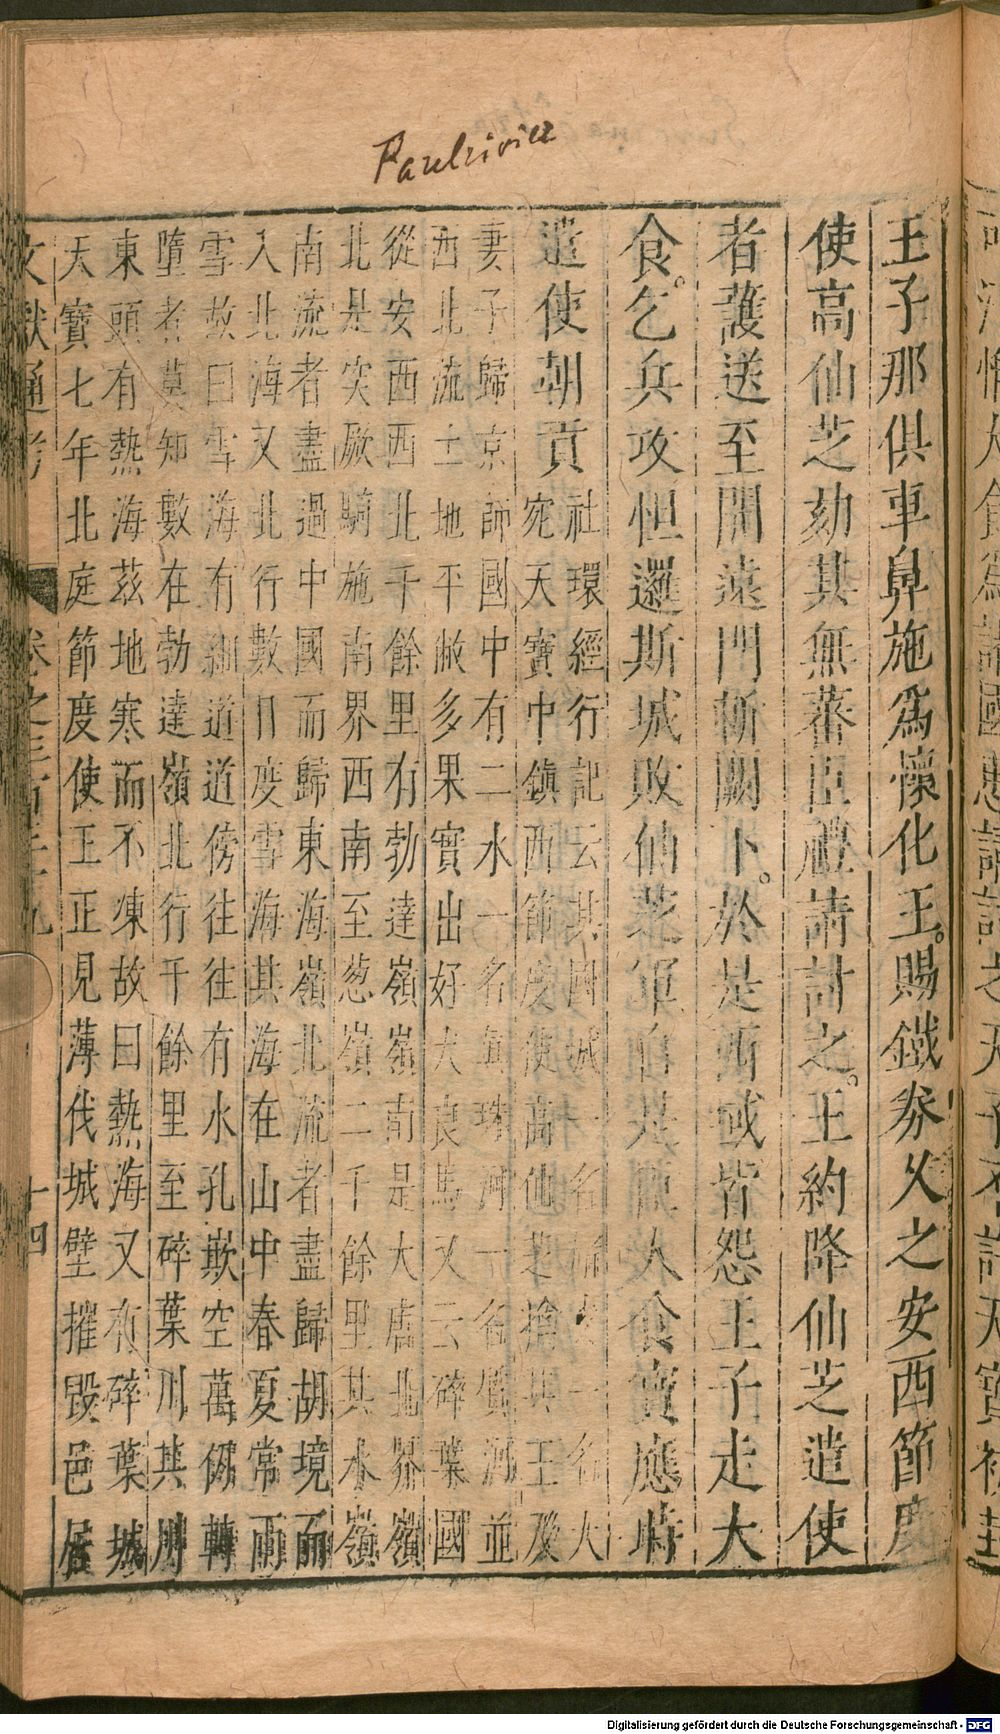 Paulrivier
王子那俱車鼻施爲懷化王。賜鐵券久之安西節度
使高仙芝劾其無蕃臣禮請討之。王約降仙芝遣使
者護送至開遠門斬闕下。於是西域皆怨王子走大
食。乞兵攻怛邏斯城敗仙芝軍自是臣大食寶應時
遣使朝貢
社環經行記云其國城一名赭支一名大
宛天寶中鎮西節度使高仙芝擒其王及
妻子歸京師國中有二水一名眞珠河一名質河並
西北流土地平敞多果實出好犬良馬又云碎葉國
從安西西北千餘里有勃達嶺嶺南是大唐北界嶺
北是突厥騎施南界西南至葱嶺二千餘里其水嶺
南流者盡過中國而歸東海嶺北流者盡歸胡境而
入北海又北行數日度雪海其海在山中春夏常雨
雪故曰雪海有細道道傍往往有水孔嵌空萬仞轉
墮者莫知數在勃達嶺北行千餘里至碎葉川其川
東頭有熱海茲地寒而不凍故曰熱海又有碎葉城
天寶七年北庭節度使王正見薄伐城壁摧毀邑居
文獻通考 卷之三百三十九 十四
Digitalisierung gefördert durch die Deutsche Forschungsgemeinschaft - DFG